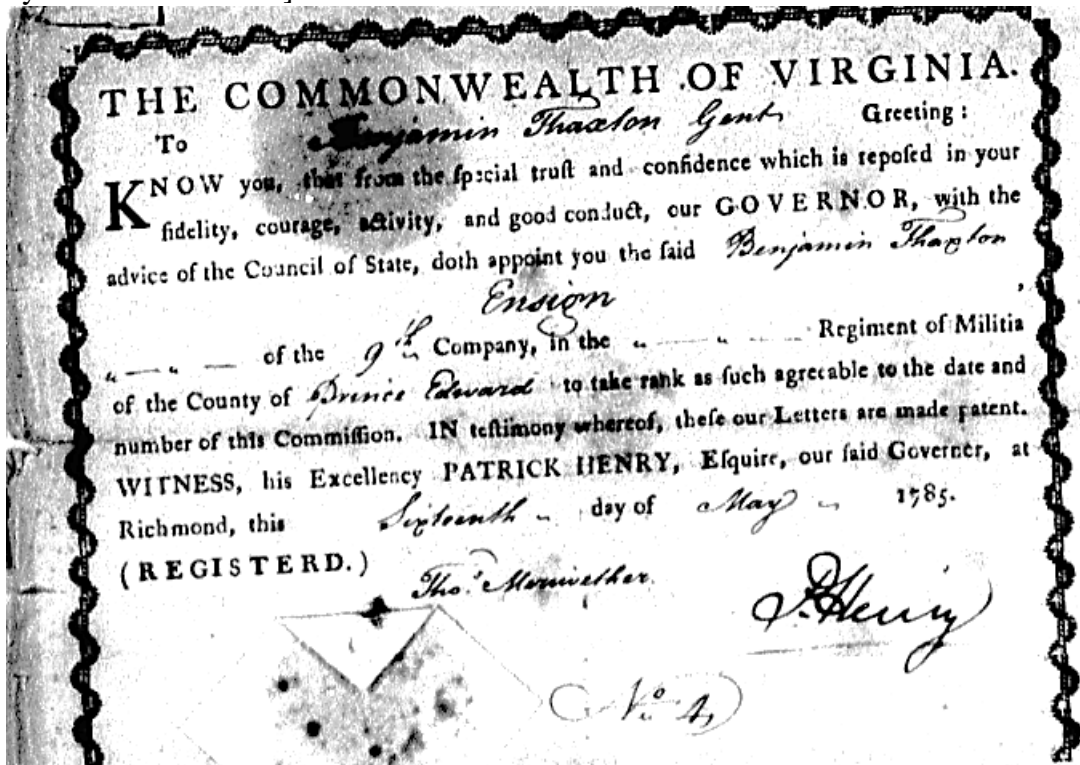 THE COMMONWEALTH OF VIRGINIA.
To Benjamin Thaxton Gent. Greeting:
KNOW you, that from the ſpecial truſt and confidence which is repoſed in your
fidelity, courage, activity, and good conduct, our GOVERNOR, with the
advice of the Council of State, doth appoint you the ſaid Benjamin Thaxton
Ensign ,
„ — „ — of the 9th Company, in the „ — „ — Regiment of Militia
of the County of Prince Edward to take rank as ſuch agreeable to the date and
number of this Commiſſion. IN teſtimony whereof, theſe our Letters are made patent.
WITNESS, his Excellency PATRICK HENRY, Eſquire, our ſaid Governer, at
Richmond, this Sixteenth day of May 1785.
(REGISTERD.)
Thos. Meriwether
P. Henry
No. 4